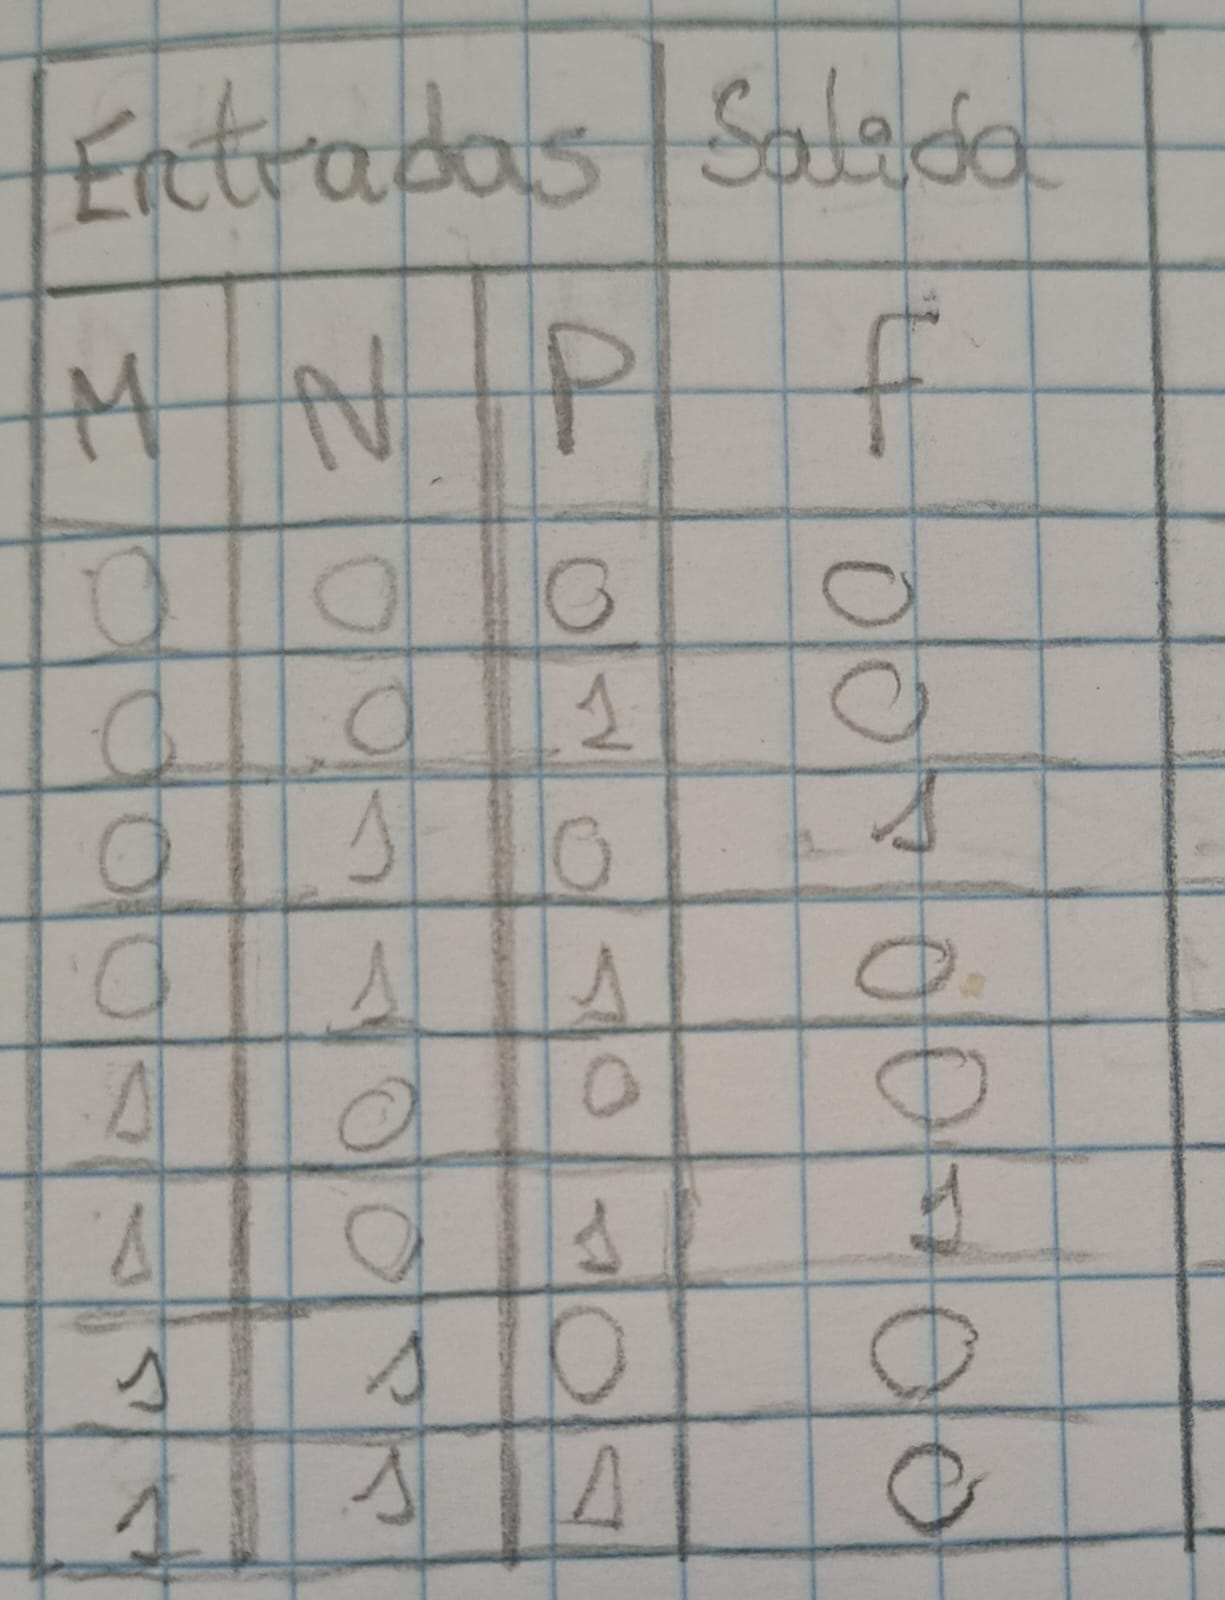 Entradas Salida
M N P F
0 0 0 0
0 0 1 0
0 1 0 1
0 1 1 0
1 0 0 0
1 0 1 1
1 1 0 0
1 1 1 0